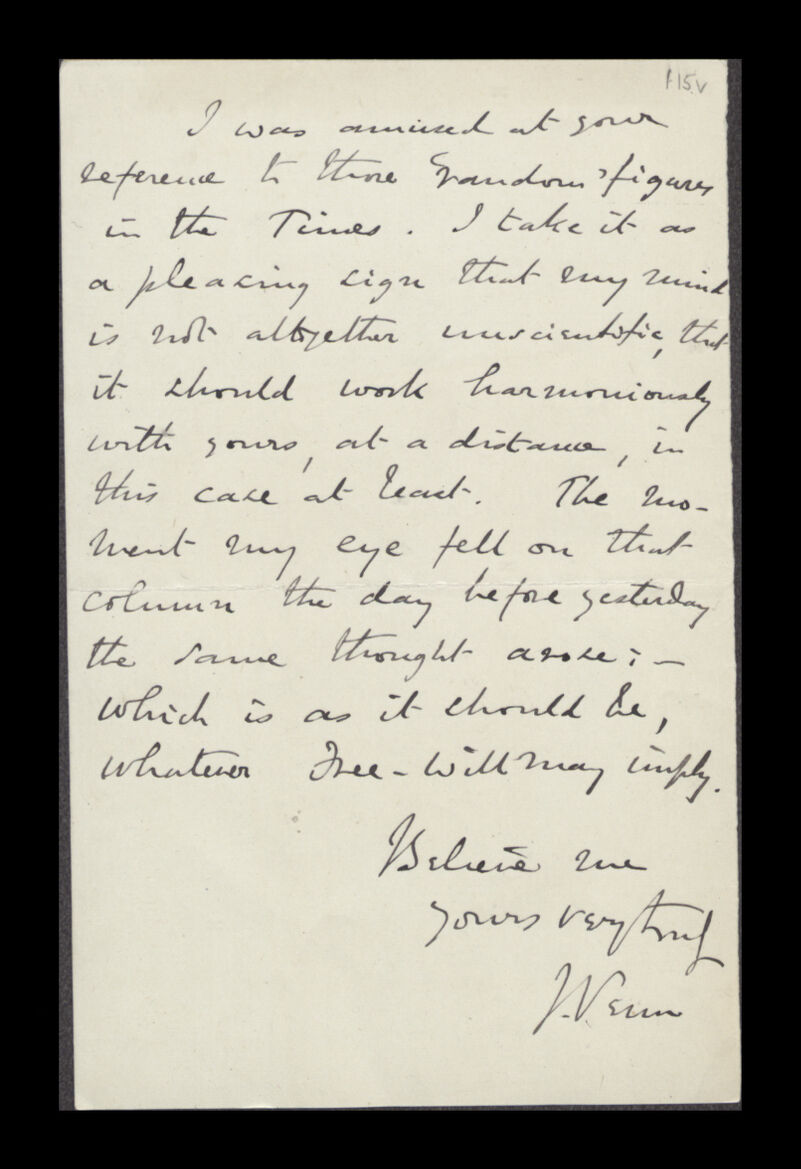 f15v
I was amused at your
reference to those "random" figures
in the Times. I take it as
a pleasing sign that my mind
is not altogether unscientific, that
it should work harmoniously
with yours, at a distance, in
this case at least. The mo-
ment my eye fell on that
column the day before yesterday
the same thought arose; —
which is as it should be,
whatever Free-Will may imply.
Believe me
yours very truly
J. Venn